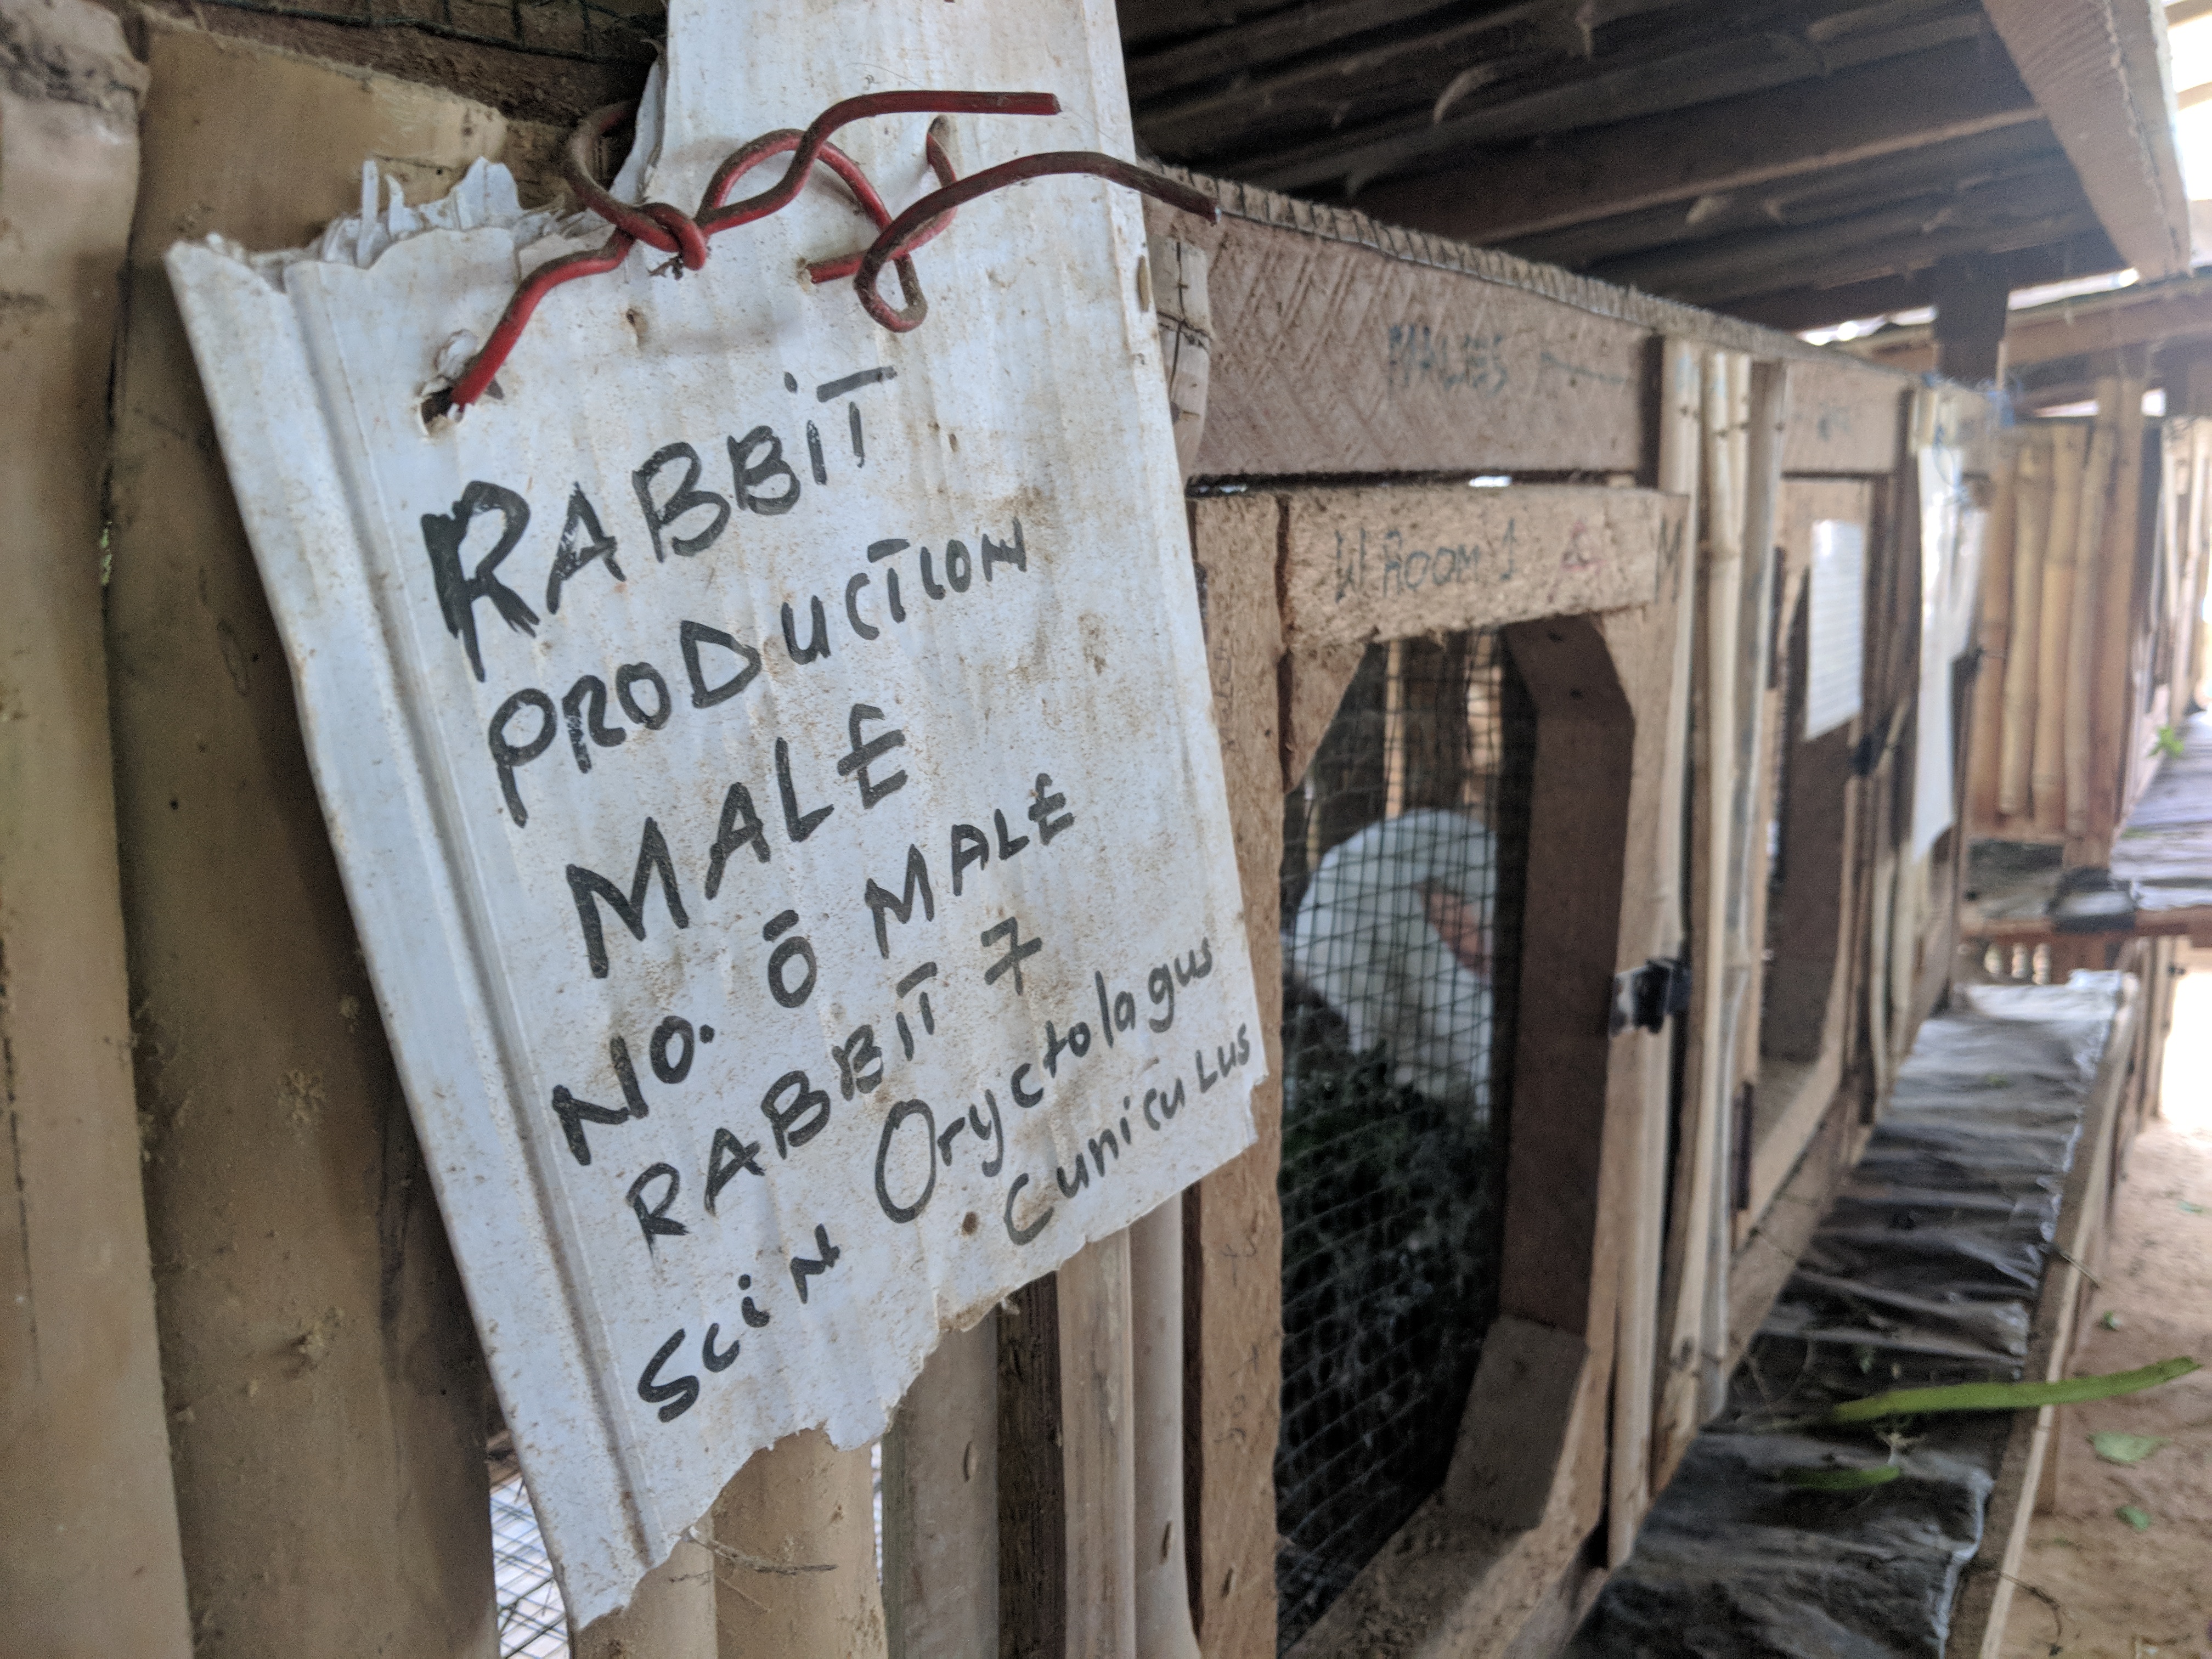 RABBIT
PRODUCTION
MALE
No. ō MALE
RABBIT 7
Sci N Oryctolagus
Cuniculus
MALES
W ROOM 1
M